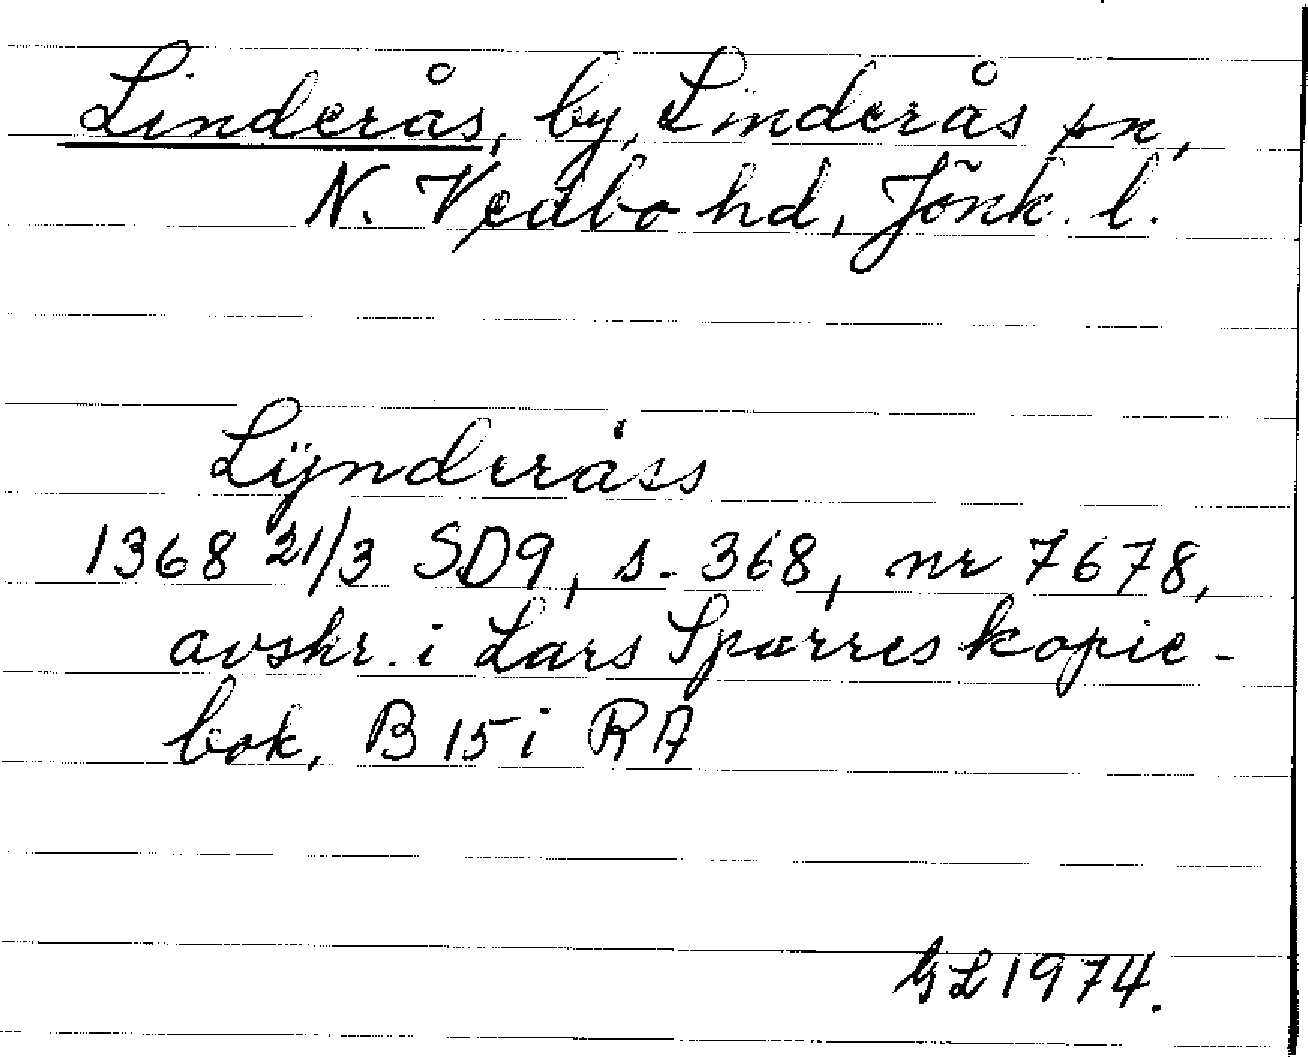 Linderås, by, Linderås sn,
N. Vedbo hd, Jönk. l.
Lÿnderåss
1368 21/3 SD9, s. 368, nr 7678,
avskr. i Lars Sparres kopie-
bok, B 15 i RA
GL 1974.